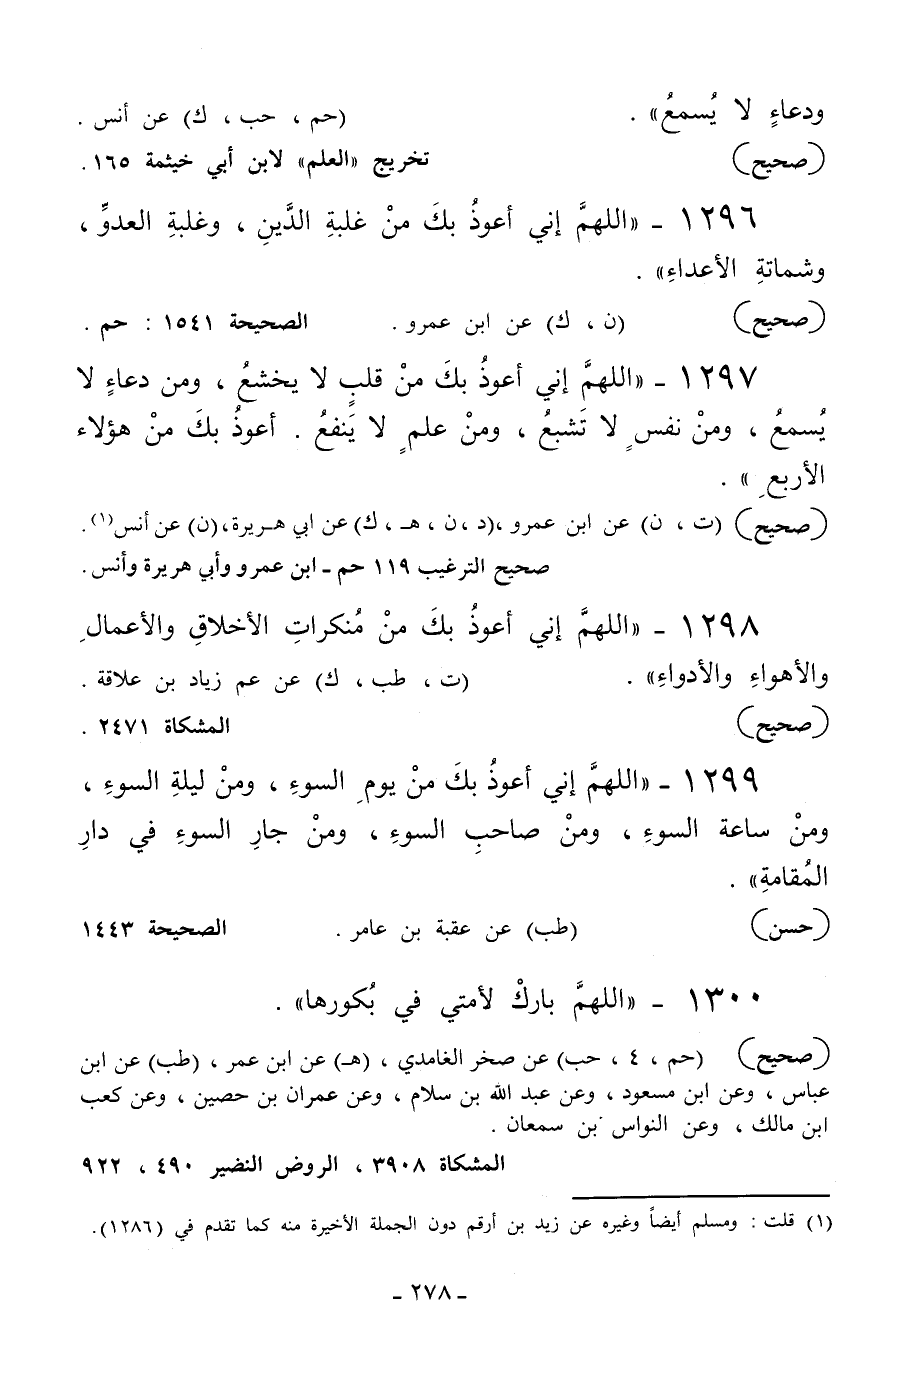 ودعاءٍ لا يُسمعُ» . (حم ، حب ، ك) عن أنس .
(صحيح) تخريج «العلم» لابن أبي خيثمة ١٦٥ .
١٢٩٦ - «اللهمَّ إني أعوذُ بكَ منْ غلبةِ الدَّينِ ، وغلبةِ العدوِّ ،
وشماتةِ الأعداءِ» .
(صحيح) (ن ، ك) عن ابن عمرو . الصحيحة ١٥٤١ : حم .
١٢٩٧ - «اللهمَّ إني أعوذُ بكَ منْ قلبٍ لا يخشعُ ، ومن دعاءٍ لا
يُسمعُ ، ومنْ نفسٍ لا تَشبعُ ، ومنْ علمٍ لا يَنفعُ . أعوذُ بكَ منْ هؤلاء
الأربعِ» .
(صحيح) (ت ، ن) عن ابن عمرو ،(د ،ن ، هـ ، ك) عن ابي هـريرة،(ن) عن أنس(١).
صحيح الترغيب ١١٩ حم - ابن عمرو وأبي هريرة وأنس.
١٢٩٨ - «اللهمَّ إني أعوذُ بكَ منْ مُنكراتِ الأخلاقِ والأعمالِ
والأهواءِ والأدواءِ» . (ت ، طب ، ك) عن عم زياد بن علاقة .
(صحيح) المشكاة ٢٤٧١ .
١٢٩٩ - «اللهمَّ إني أعوذُ بكَ منْ يومِ السوءِ ، ومنْ ليلةِ السوءِ ،
ومنْ ساعة السوءِ ، ومنْ صاحبِ السوءِ ، ومنْ جارِ السوءِ في دارِ
المُقامةِ» .
(حسن) (طب) عن عقبة بن عامر . الصحيحة ١٤٤٣
١٣٠٠ - «اللهمَّ باركْ لأمتي في بُكورها» .
(صحيح) (حم ، ٤ ، حب) عن صخر الغامدي ، (هـ) عن ابن عمر ، (طب) عن ابن
عباس ، وعن ابن مسعود ، وعن عبد الله بن سلام ، وعن عمران بن حصين ، وعن كعب
ابن مالك ، وعن النواس بن سمعان .
المشكاة ٣٩٠٨ ، الروض النضير ٤٩٠ ، ٩٢٢
(١) قلت : ومسلم أيضاً وغيره عن زيد بن أرقم دون الجملة الأخيرة منه كما تقدم في (١٢٨٦).
- ٢٧٨ -